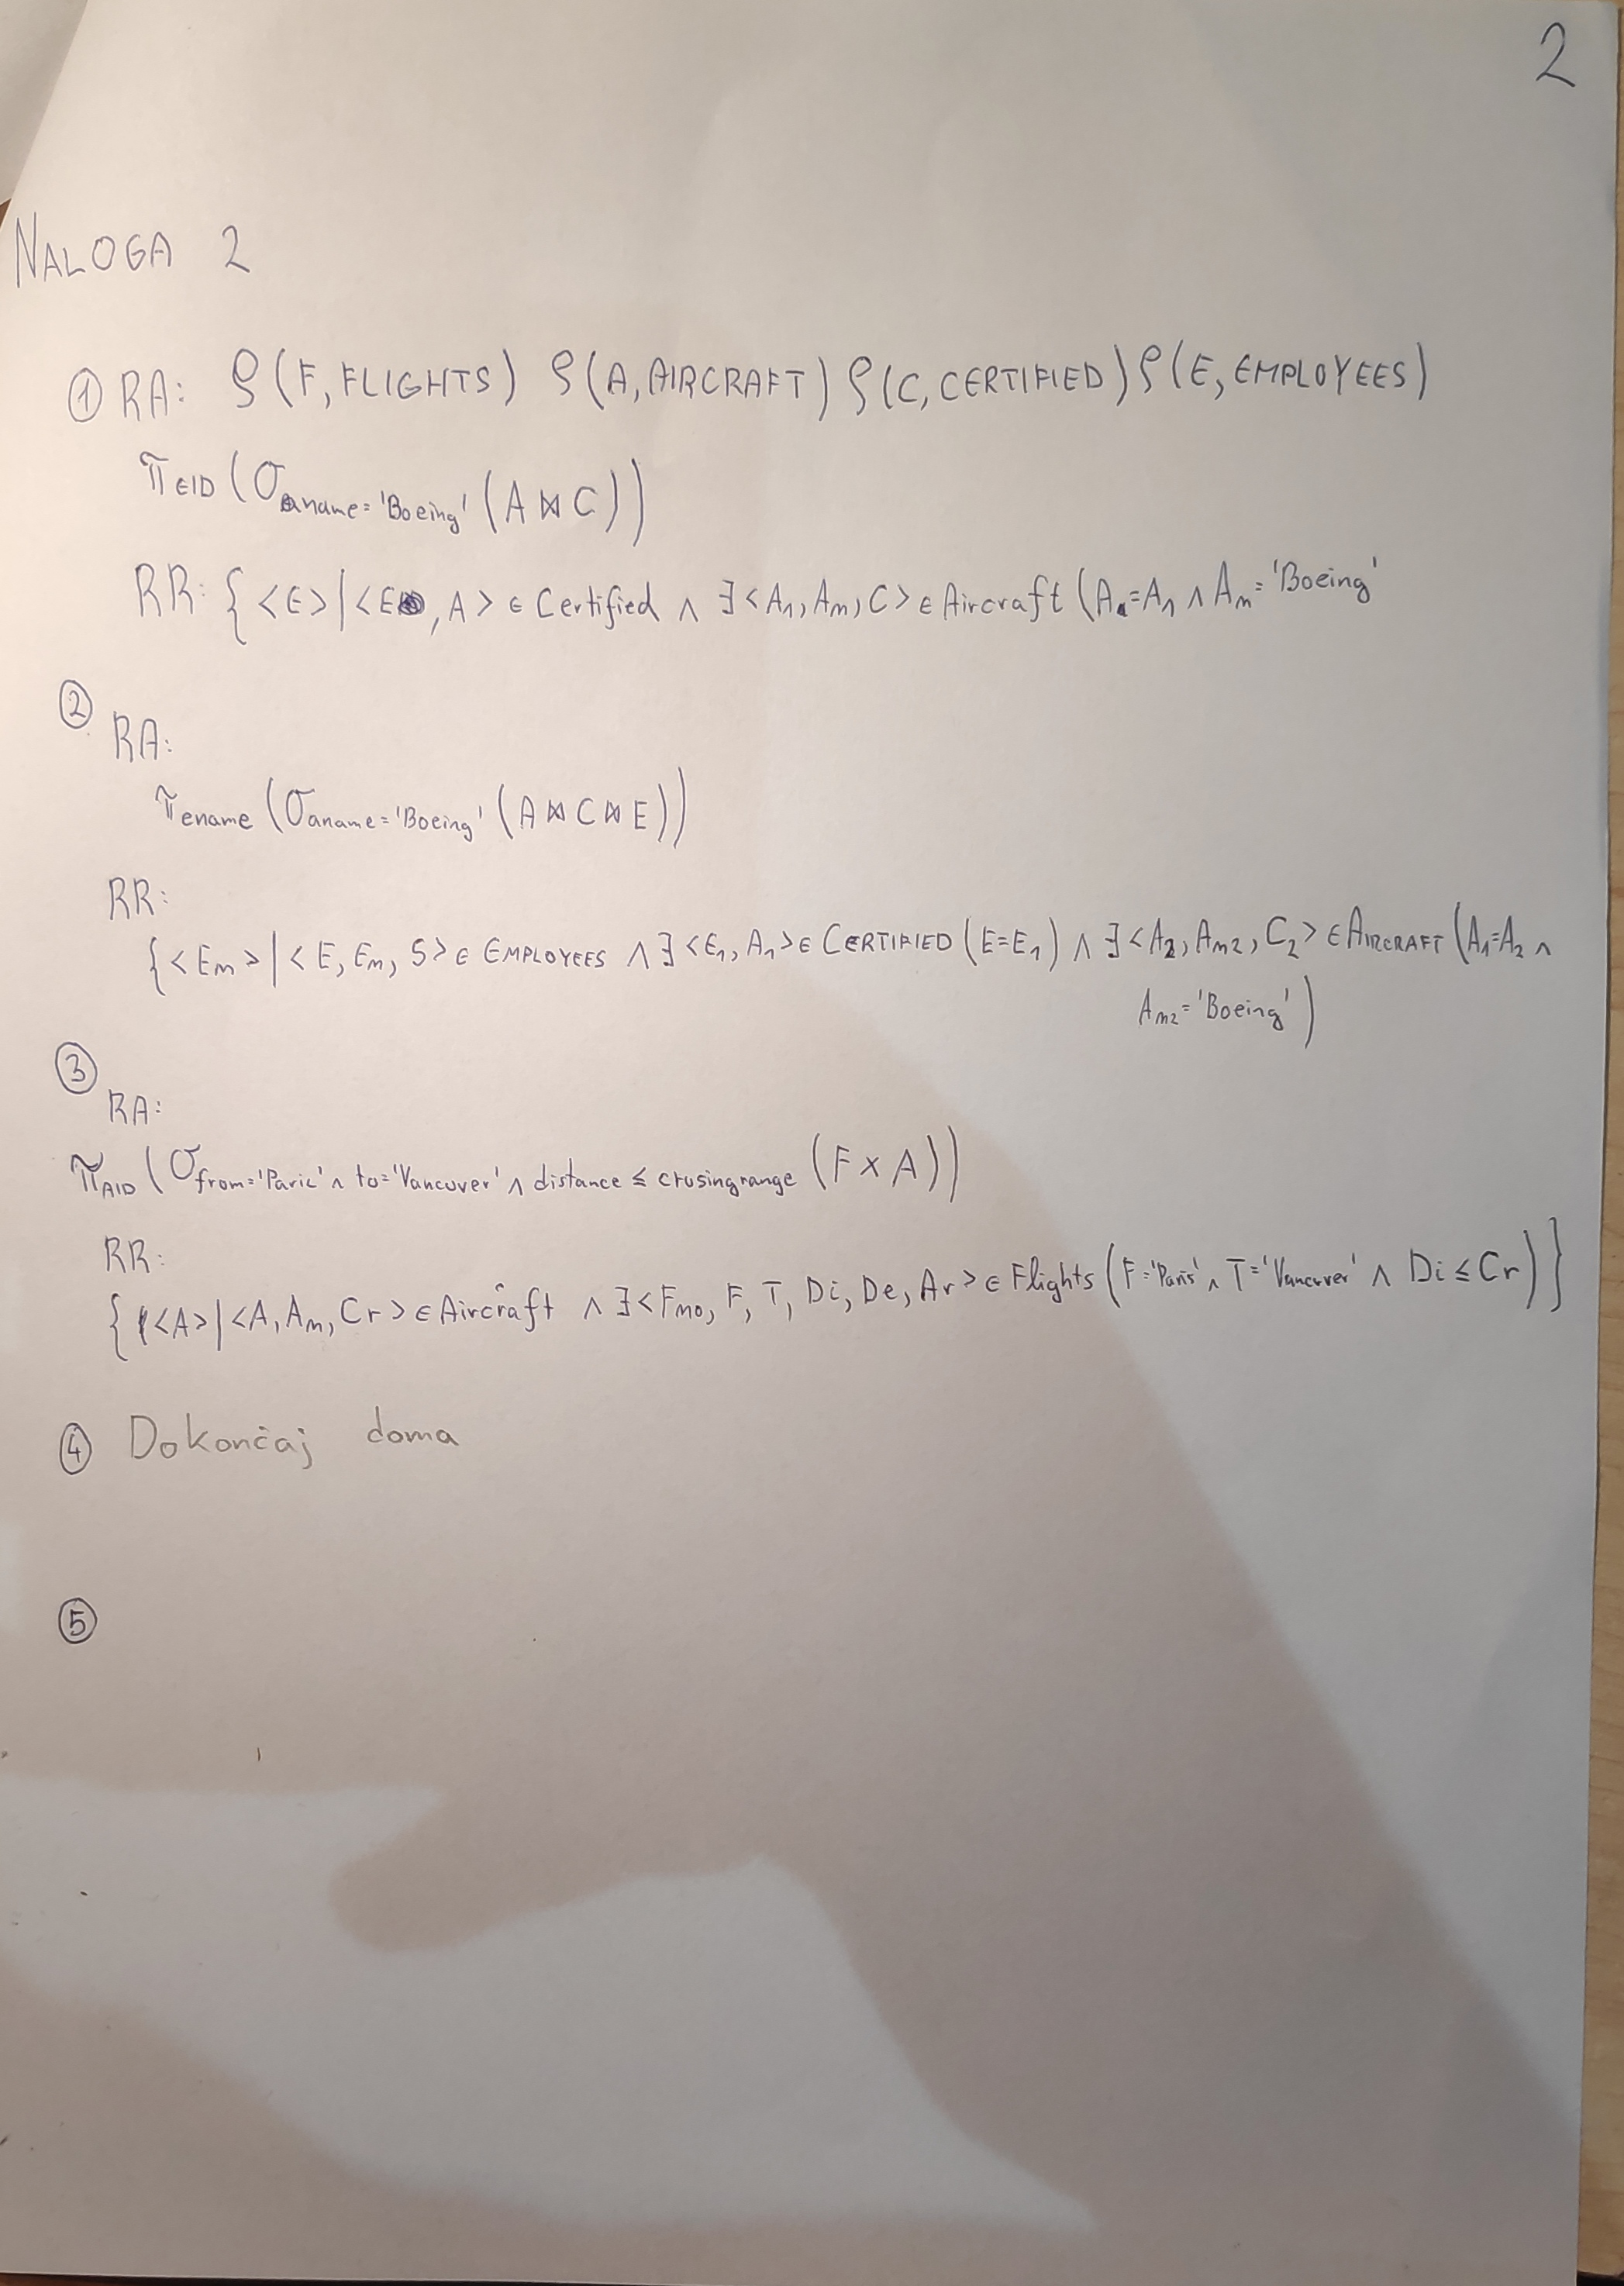 2
NALOGA 2
① RA: ρ(F, FLIGHTS) ρ(A, AIRCRAFT) ρ(C, CERTIFIED) ρ(E, EMPLOYEES)
π EID (σ aname='Boeing' (A ⋈ C))
RR: { <E> | <E, A> ∈ Certified ∧ ∃ <A₁, Aₙ, C> ∈ Aircraft (A=A₁ ∧ Aₙ='Boeing'
②
RA:
π ename (σ aname='Boeing' (A ⋈ C ⋈ E))
RR:
{ <Eₙ> | <E, Eₙ, S> ∈ EMPLOYEES ∧ ∃ <E₁, A₁> ∈ CERTIFIED (E=E₁) ∧ ∃ <A₂, Aₙ₂, C₂> ∈ AIRCRAFT (A₁=A₂ ∧
Aₙ₂='Boeing')
③
RA:
π AID (σ from='Paric' ∧ to='Vancuver' ∧ distance ≤ crusingrange (F × A))
RR:
{ <A> | <A, Aₙ, Cr> ∈ Aircraft ∧ ∃ <Fₙₒ, F, T, Di, De, Ar> ∈ Flights (F='Paris' ∧ T='Vancuver' ∧ Di ≤ Cr) }
④ Dokončaj doma
⑤